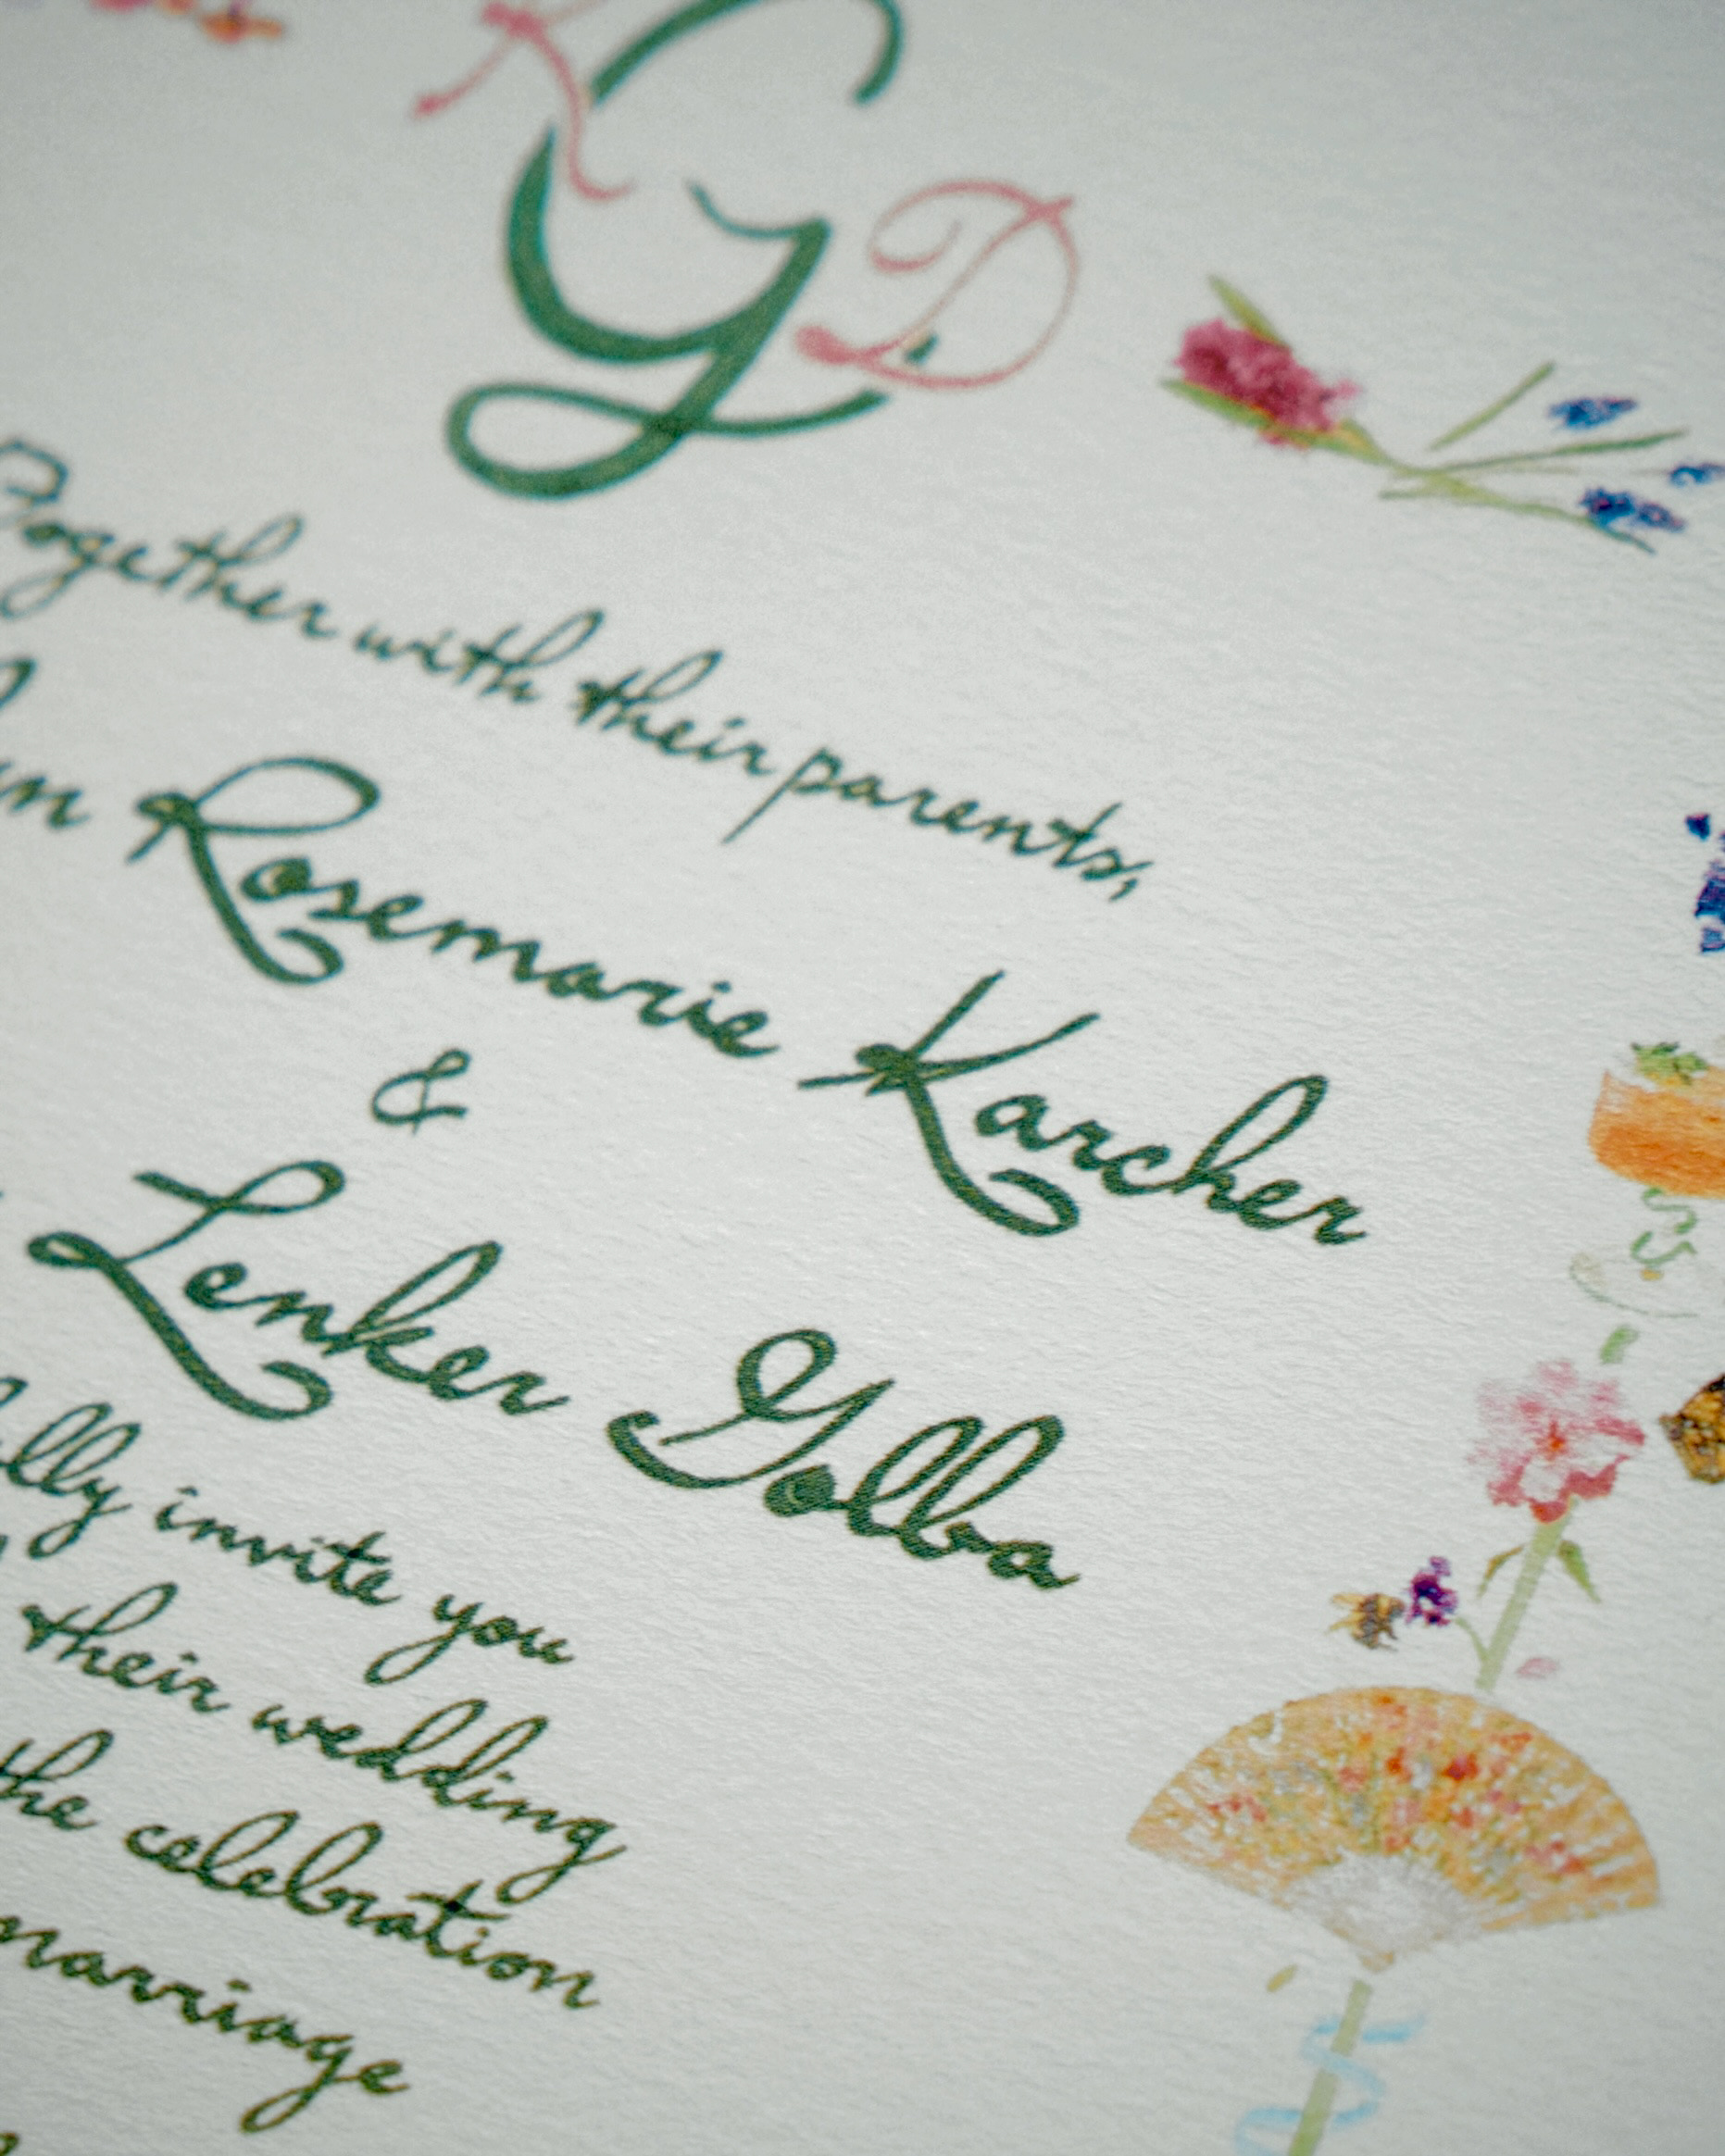 K G D
Together with their parents,
Rosemarie Karcher
&
Lenker Golba
invite you
their wedding
the celebration
marriage